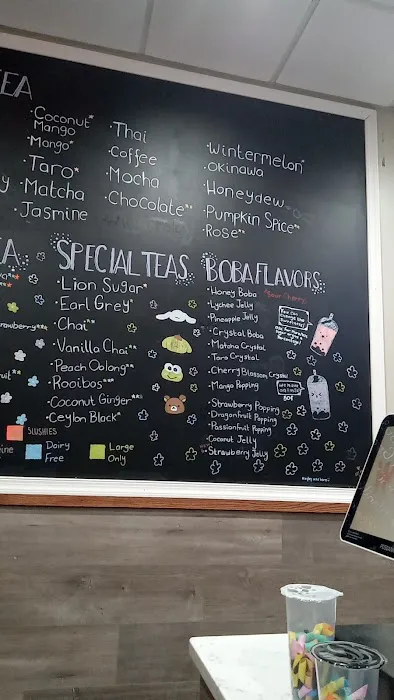 EA
·Coconut*
Mango
·Mango*
·Taro*
·Matcha
·Jasmine
y
·Thai
·Coffee
·Mocha
·Chocolate**
·Wintermelon*
·Okinawa
·Honeydew
·Pumpkin Spice**
·Rose**
A
SPECIAL TEAS
·Lion Sugar*
·Earl Grey*
·Chai**
·Vanilla Chai**
·Peach Oolong**
·Rooibos***
·Coconut Ginger***
·Ceylon Black*
BOBA FLAVORS
·Honey Boba
·Lychee Jelly
·Pineapple Jelly
·Crystal Boba
·Matcha Crystal
·Taro Crystal
·Cherry Blossom Crystal
·Mango Popping
·Strawberry Popping
·Dragonfruit Popping
·Passionfruit Popping
·Coconut Jelly
·Strawberry Jelly
You can
80¢
SLUSHIES
Dairy
Free
Large
Only